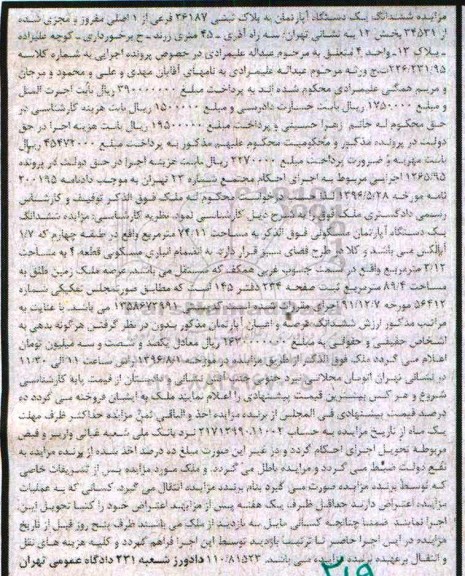 مزایده ششدانگ یک دستگاه آپارتمان به پلاک ثبتی ۳۶۱۸۷ فرعی از ۱ اصلی مفروز و مجزی شده
از ۳۴۵۳۱ بخش ۱۲ به نشانی تهران، سه راه آذری - ۴۵ متری زرند - خ برخورداری - کوچه علیزاده
- پلاک ۱۳ - واحد ۴ متعلق به مرحوم عبداله علیمرادی در خصوص پرونده اجرایی به شماره کلاسه
ورثه مرحوم عبداله علیمرادی به نامهای آقایان مهدی و علی و محمود و مرجان
و مریم همگی علیمرادی محکوم شده اند به پرداخت مبلغ ۳۹۰۰۰۰۰۰۰ ریال بابت اجرت المثل
و مبلغ ۱۷۵۰۰۰۰ ریال بابت خسارت دادرسی و مبلغ ۱۵۰۰۰۰۰ ریال بابت هزینه کارشناسی در
حق محکوم له خانم زهرا حسینی و پرداخت مبلغ ۱۹۵۰۰۰۰۰ ریال بابت هزینه اجرا در حق
دولت در پرونده مذکور و محکومیت محکوم علیهم مذکور به پرداخت مبلغ ۴۵۴۷۲۰۰۰ ریال
بابت مهریه و ضرورت پرداخت مبلغ ۲۲۷۰۰۰۰ ریال بابت هزینه اجرا در حق دولت در پرونده
۱۲۶۵/۹۵ اجرایی مربوط به اجرای احکام مجتمع شماره ۱۲ تهران به موجب دادنامه ۲۰۰۱۹۵
نامه مورخه ۱۳۹۶/۵/۲۸ لذا حسب درخواست محکوم له ملک فوق الذکر توقیف و کارشناسی
رسمی دادگستری ملک فوق را به شرح ذیل کارشناسی نمود. نظریه کارشناسی: مزایده ششدانگ
یک دستگاه آپارتمان مسکونی فوق الذکر به مساحت ۷۴/۱۱ مترمربع واقع در طبقه چهارم که ۱/۷
آن بالکن می باشد و کلا در طرح فضای سبز قرار دارد به انضمام انباری مسکونی قطعه ۴ به مساحت
۲/۱۲ مترمربع واقع در سمت جنوب غربی همکف که مستقل می باشد، عرصه ملک زمین طلق به
مساحت ۸۹/۴ مترمربع ثبت صفحه ۲۳۴ دفتر ۱۴۵ است که مطابق صورتمجلس تفکیکی شماره
۵۶۴۱۲ مورخه ۹۱/۱۲/۷ اجرای مقررات ثبتی است کدپستی ۱۳۵۸۶۷۳۹۹۱ می باشد. با عنایت به
مراتب مذکور ارزش ششدانگ عرصه و اعیان آپارتمان مذکور بدون در نظر گرفتن هرگونه بدهی به
اشخاص حقیقی و حقوقی به مبلغ ریال معادل یکصد و شصت و سه میلیون تومان
اعلام می گردد ملک فوق الذکر از طریق مزایده در مورخه ۱۳۹۶/۸/۱ راس ساعت ۱۱ الی ۱۱/۳۰
در نشانی تهران اتوبان محلاتی نبرد جنوبی جنب آتش نشانی و بهزیستان از قیمت پایه کارشناسی
شروع و هر کس بیشترین قیمت پیشنهادی را اعلام نمایند ملک به ایشان فروخته می گردد ده
درصد قیمت پیشنهادی فی المجلس از برنده مزایده اخذ و الباقی ثمن مزایده حداکثر ظرف مهلت
یک ماه از تاریخ مزایده به حساب ۲۱۷۱۲۹۹۰۱۱۰۰۲ نزد بانک ملی شعبه غیاثی واریز و فیض
مربوطه تحویل اجرای احکام گردد و در غیر این صورت مبلغ ده درصد اخذ شده از برنده مزایده به
نفع دولت ضبط می گردد و مزایده باطل می گردد. و ملک مورد مزایده پس از تشریفات خاصی
که توسط برنده مزایده صورت می گیرد بنام برنده مزایده انتقال می گیرد. کسانی که به عملیات
مزایده اعتراض دارند حداقل ظرف یک هفته پس از مزایده اعتراض خود را کتبا تحویل این
اجرا نمایند ضمنا چنانچه کسانی مایل به بازدید از ملک می باشند ظرف پنج روز قبل از تاریخ
مزایده در این اجرا حاضر تا ترتیبا بازدید توسط این اجرا فراهم گردد و کلیه هزینه های نقل
و انتقال برعهده برنده مزایده می باشد. ۱۱۰/۸۱۵۲۳ دادورز شعبه ۲۳۱ دادگاه عمومی تهران
۲۱۹